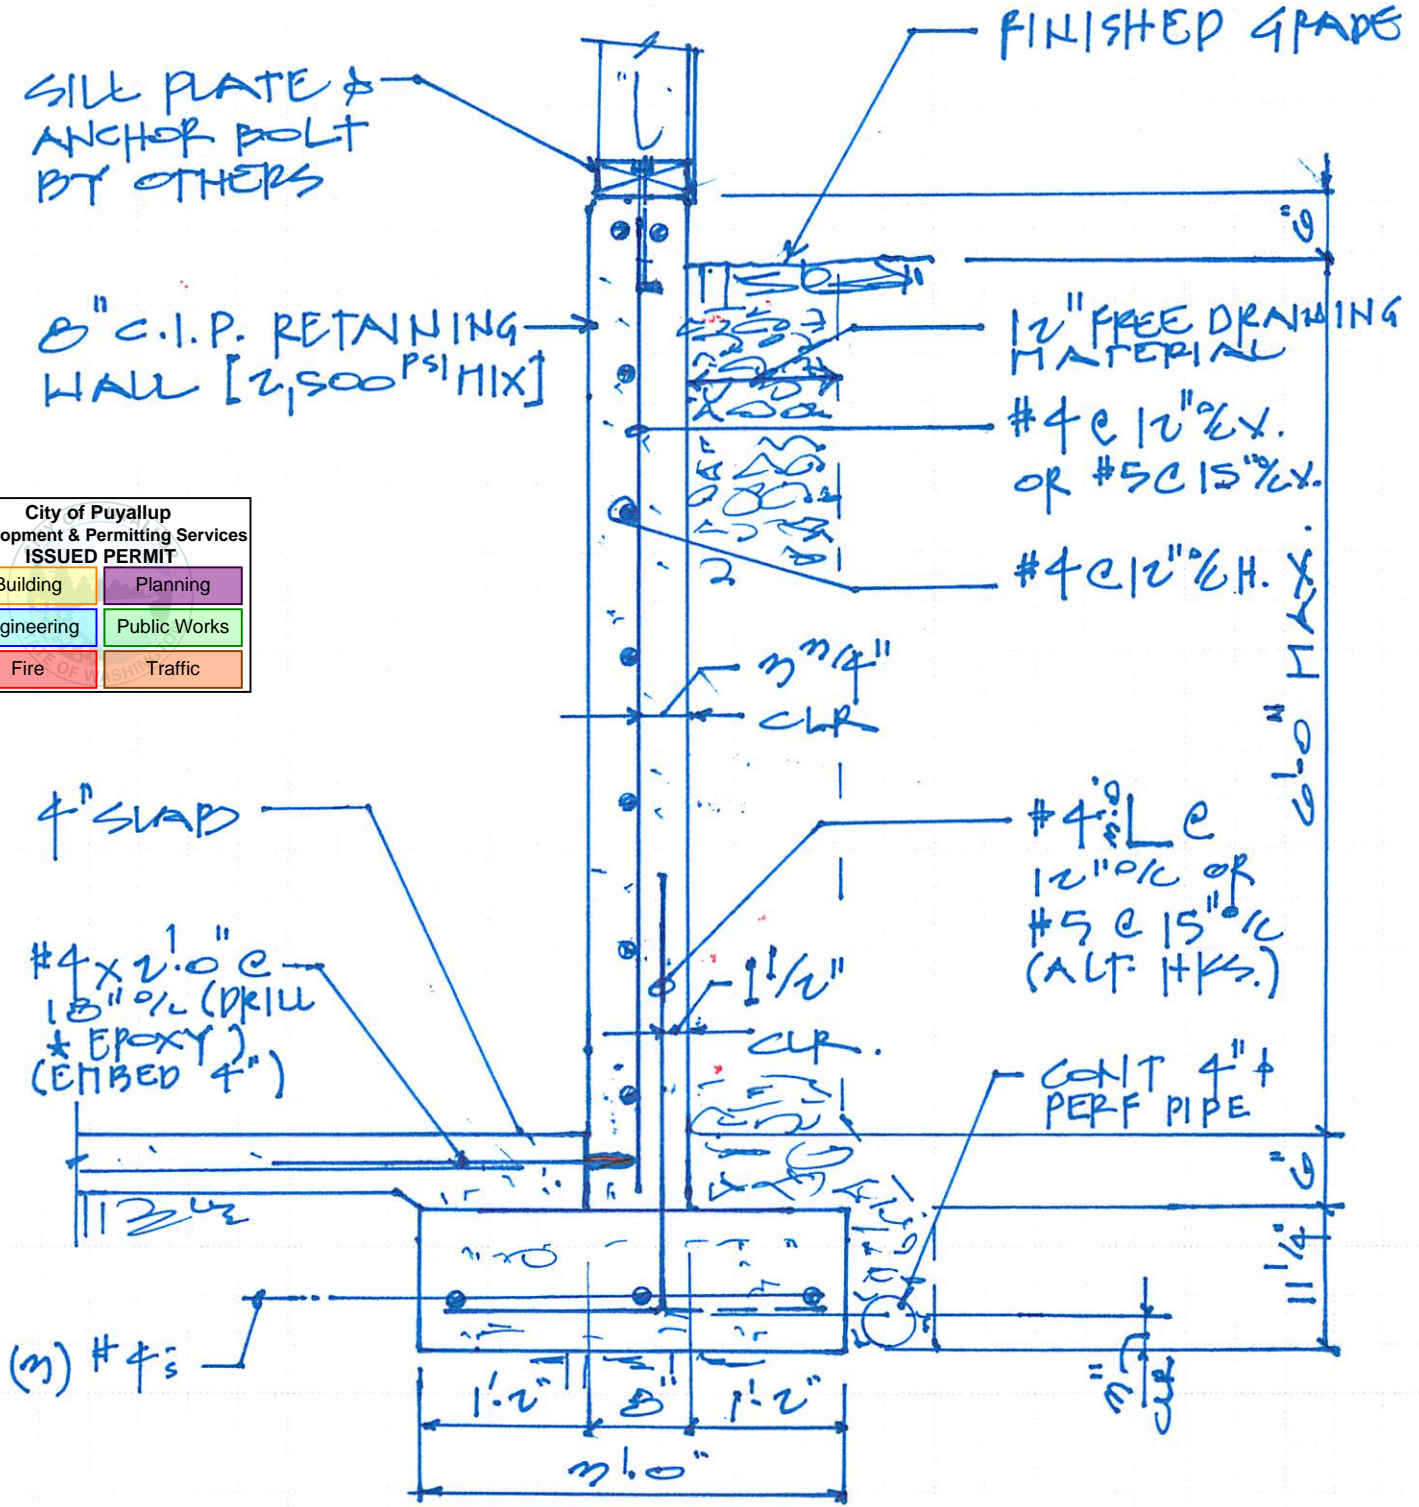 FINISHED GRADE
SILL PLATE &
ANCHOR BOLT
BY OTHERS
6"
8" C.I.P. RETAINING
WALL [2,500 PSI MIX]
12" FREE DRAINING
MATERIAL
#4 @ 12" O/C V.
OR #5 @ 15" O/C V.
#4 @ 12" O/C H.
City of Puyallup
opment & Permitting Services
ISSUED PERMIT
Building
Planning
gineering
Public Works
Fire
Traffic
3 3/4"
CLR
6'-0" MAX.
4" SLAB
#4 L @
12" O/C OR
#5 @ 15" O/C
(ALT. HKS.)
#4 x 2'.0" @
18" O/C (DRILL
& EPOXY)
(EMBED 4")
1 1/2"
CLR.
CONT 4" ϕ
PERF PIPE
6"
11 1/4"
(3) #4s
3"
CLR
1'.2"
8"
1'.2"
3'.0"